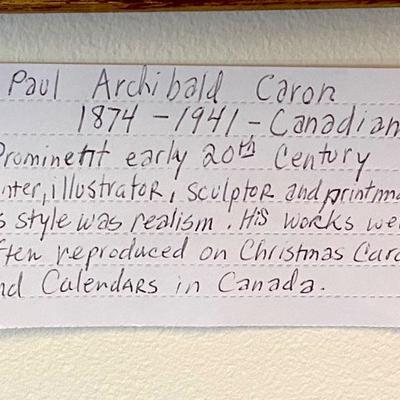 Paul Archibald Caron
1874 - 1941 - Canadian
Prominent early 20th Century
inter, illustrator, sculptor and printma
s style was realism. His works we
ften reproduced on Christmas Card
nd Calendars in Canada.